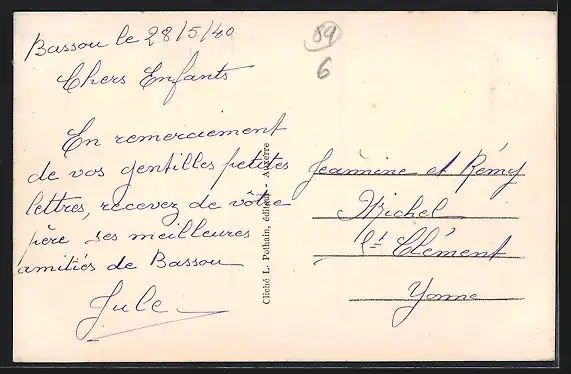 Bassou le 28/5/40
Chers Enfants
En remerciement
de vos gentilles petites
lettres, recevez de vôtre
père ses meilleures
amitiés de Bassou
Jule
Cliché L. Pothain, éditeur - Auxerre
89
6
Jeannine et Rémy
Michel
St Clément
Yonne